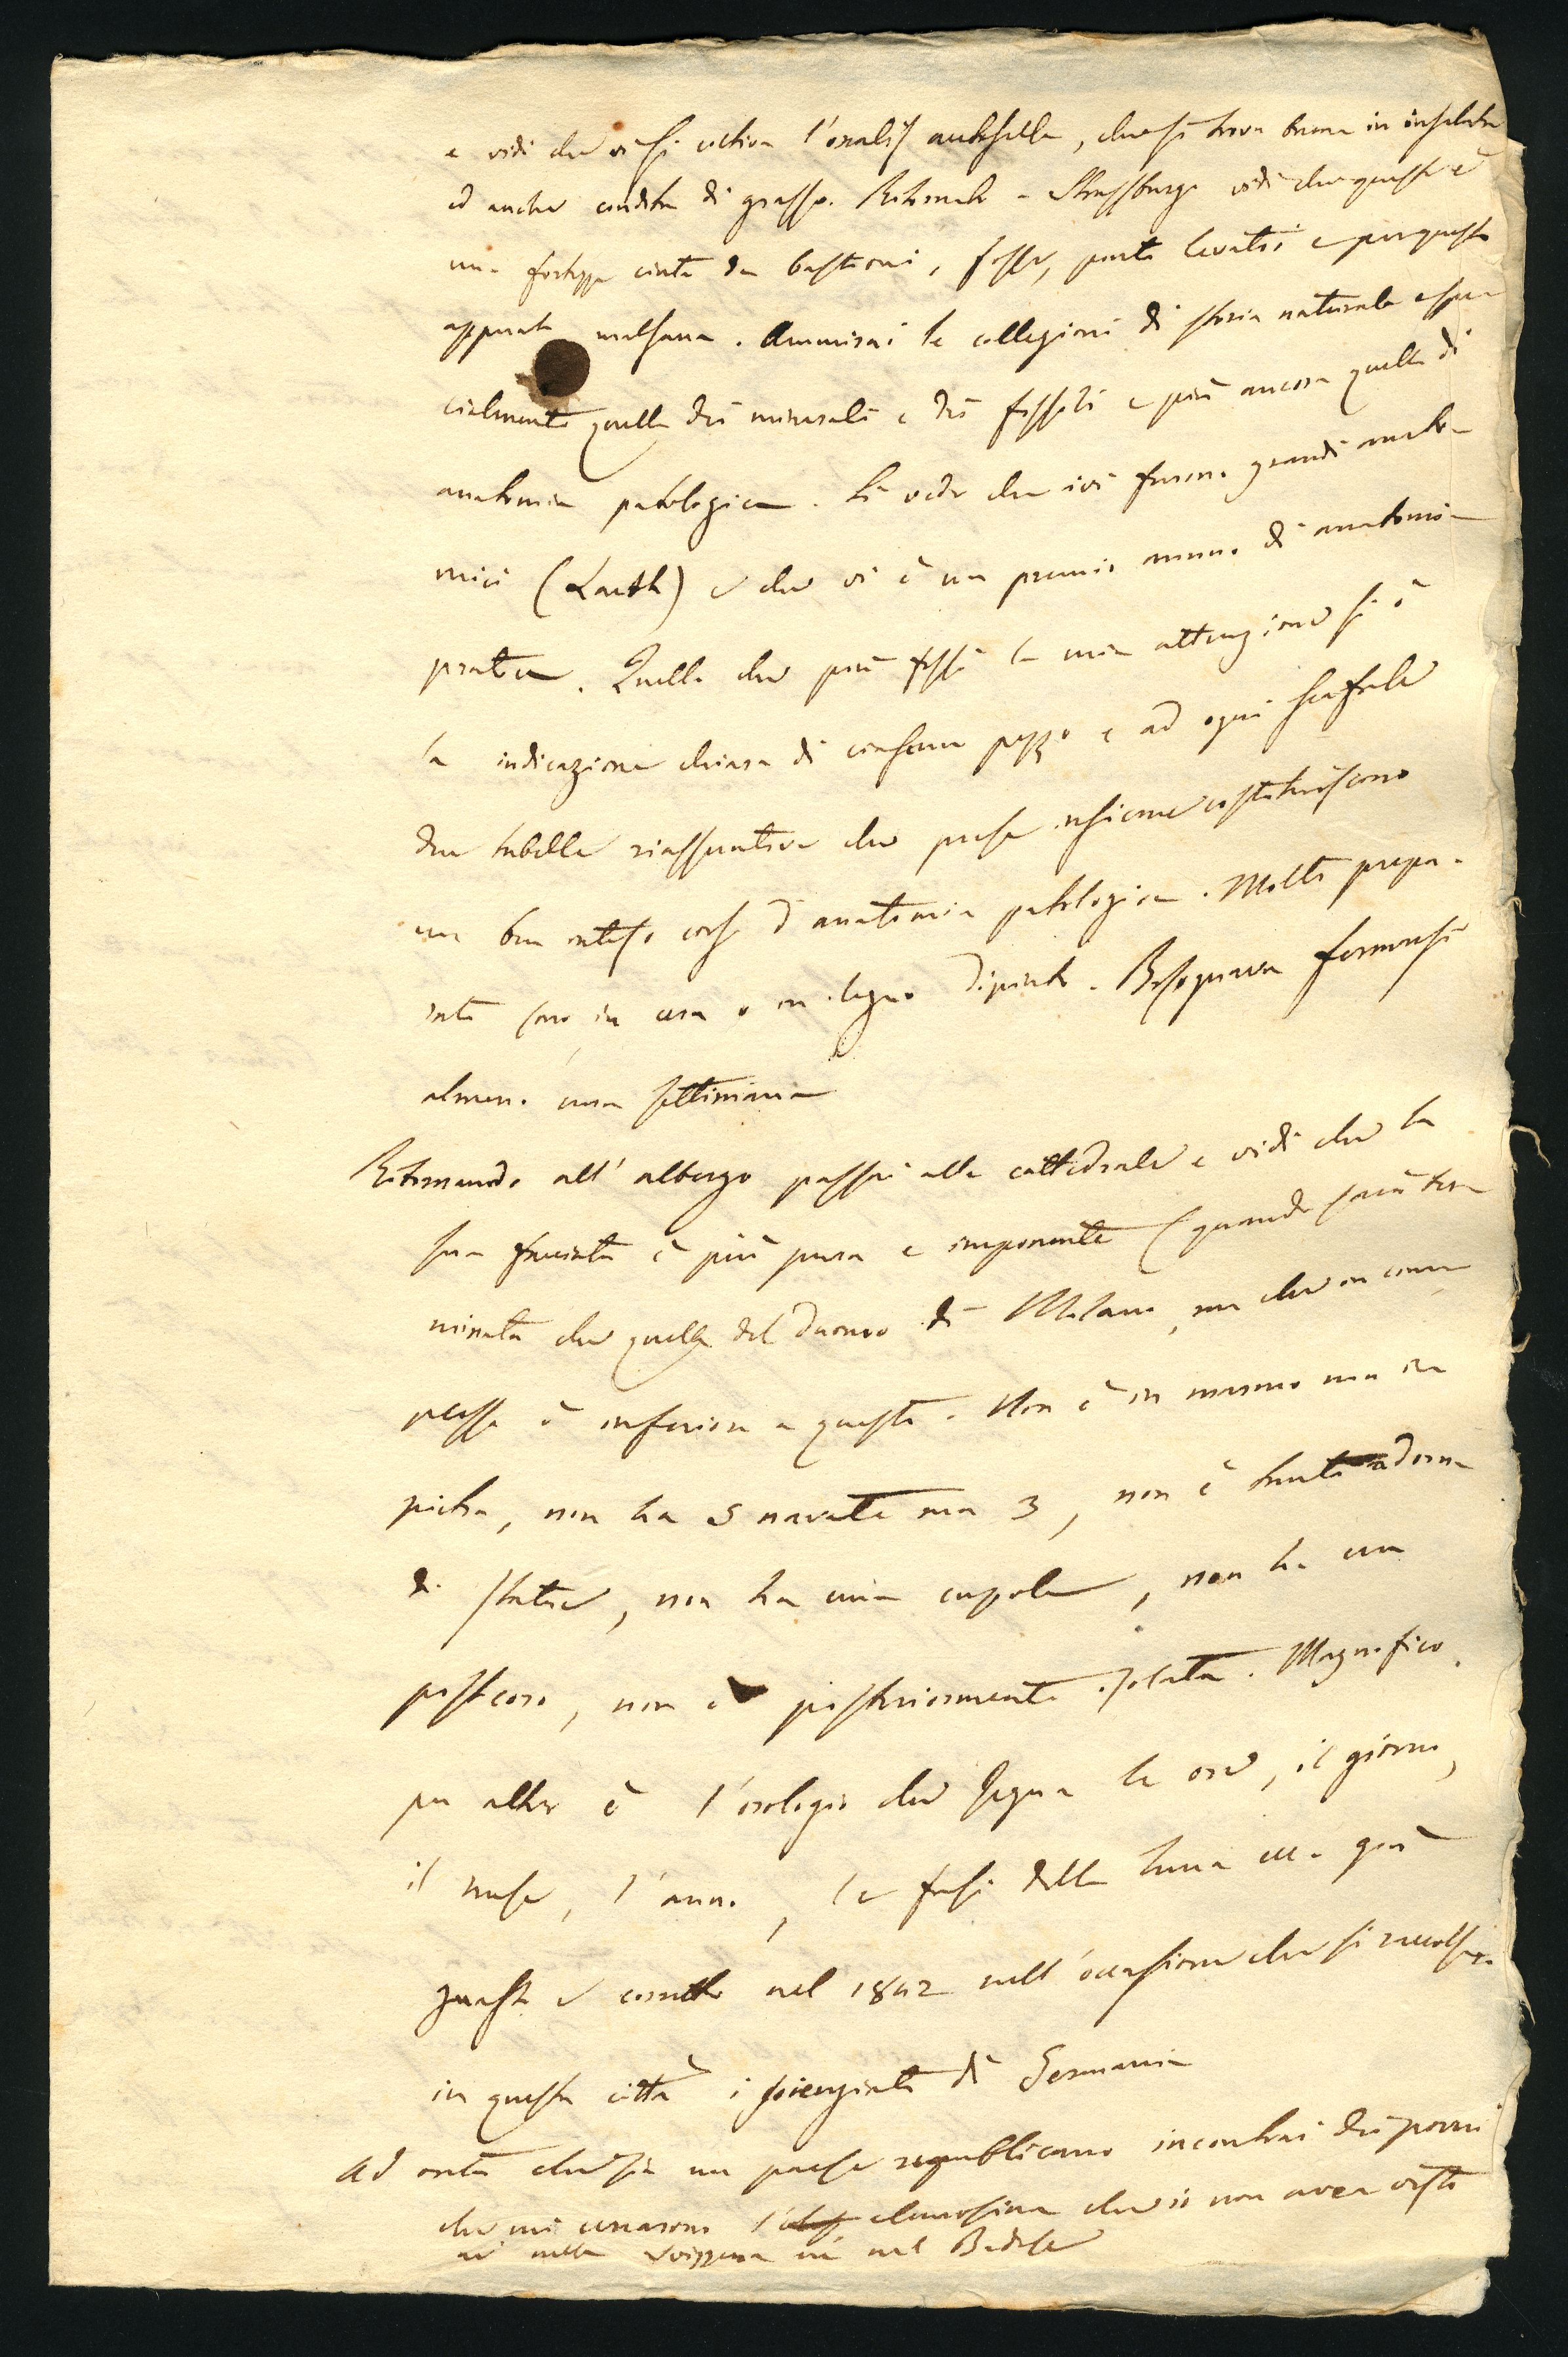 e vidi che vi si coltiva l'oxalis acetosella, che si trova buona in insalata
ed anche condita di grasso. Ritornato a Strassburgo vidi che questa è
una fortezza cinta da bastioni, fosse, ponti levatoi e per questo
appunto malsana. Ammirai le collezioni di storia naturale e spe-
cialmente quella dei minerali e dei fossili e più ancora quella di
anatomia patologica. Si vede che ivi furono grandi anato-
mici (Lauth) e che vi è un premio annuo di anatomia
pratica. Quello che più fissò la mia attenzione si è
la indicazione chiara di ciascun pezzo e ad ogni scaffale
due tabelle riassuntive che prese insieme costituiscono
un ben inteso corso d'anatomia patologica. Molti prepa-
rati sono in cera o in legno dipinto. Bisognava fermarsi
almeno una settimana
Ritornando all'albergo passai alla cattedrale e vidi che la
sua facciata è più pura e imponente (quando sarà ter-
minata che quella del Duomo di Milano, ma che in com-
plesso è inferiore a questo. Non è in marmo ma in
pietra, non ha 5 navate ma 3, non è tanto adorna
di statue, non ha una cupola, non ha un
postcoro, non è posteriormente isolata. Magnifico
per altro è l'orologio che segna le ore, il giorno,
il mese, l'anno, le fasi della luna ecc. già
guasto e corretto nel 1842 nell'occasione che si raccolsero
in questa città i scienziati di Germania
Ad onta che sia un paese republicano incontrai dei poveri
che mi cercarono l' elemosina che io non avea visto
nè nella Svizzera nè nel Badese